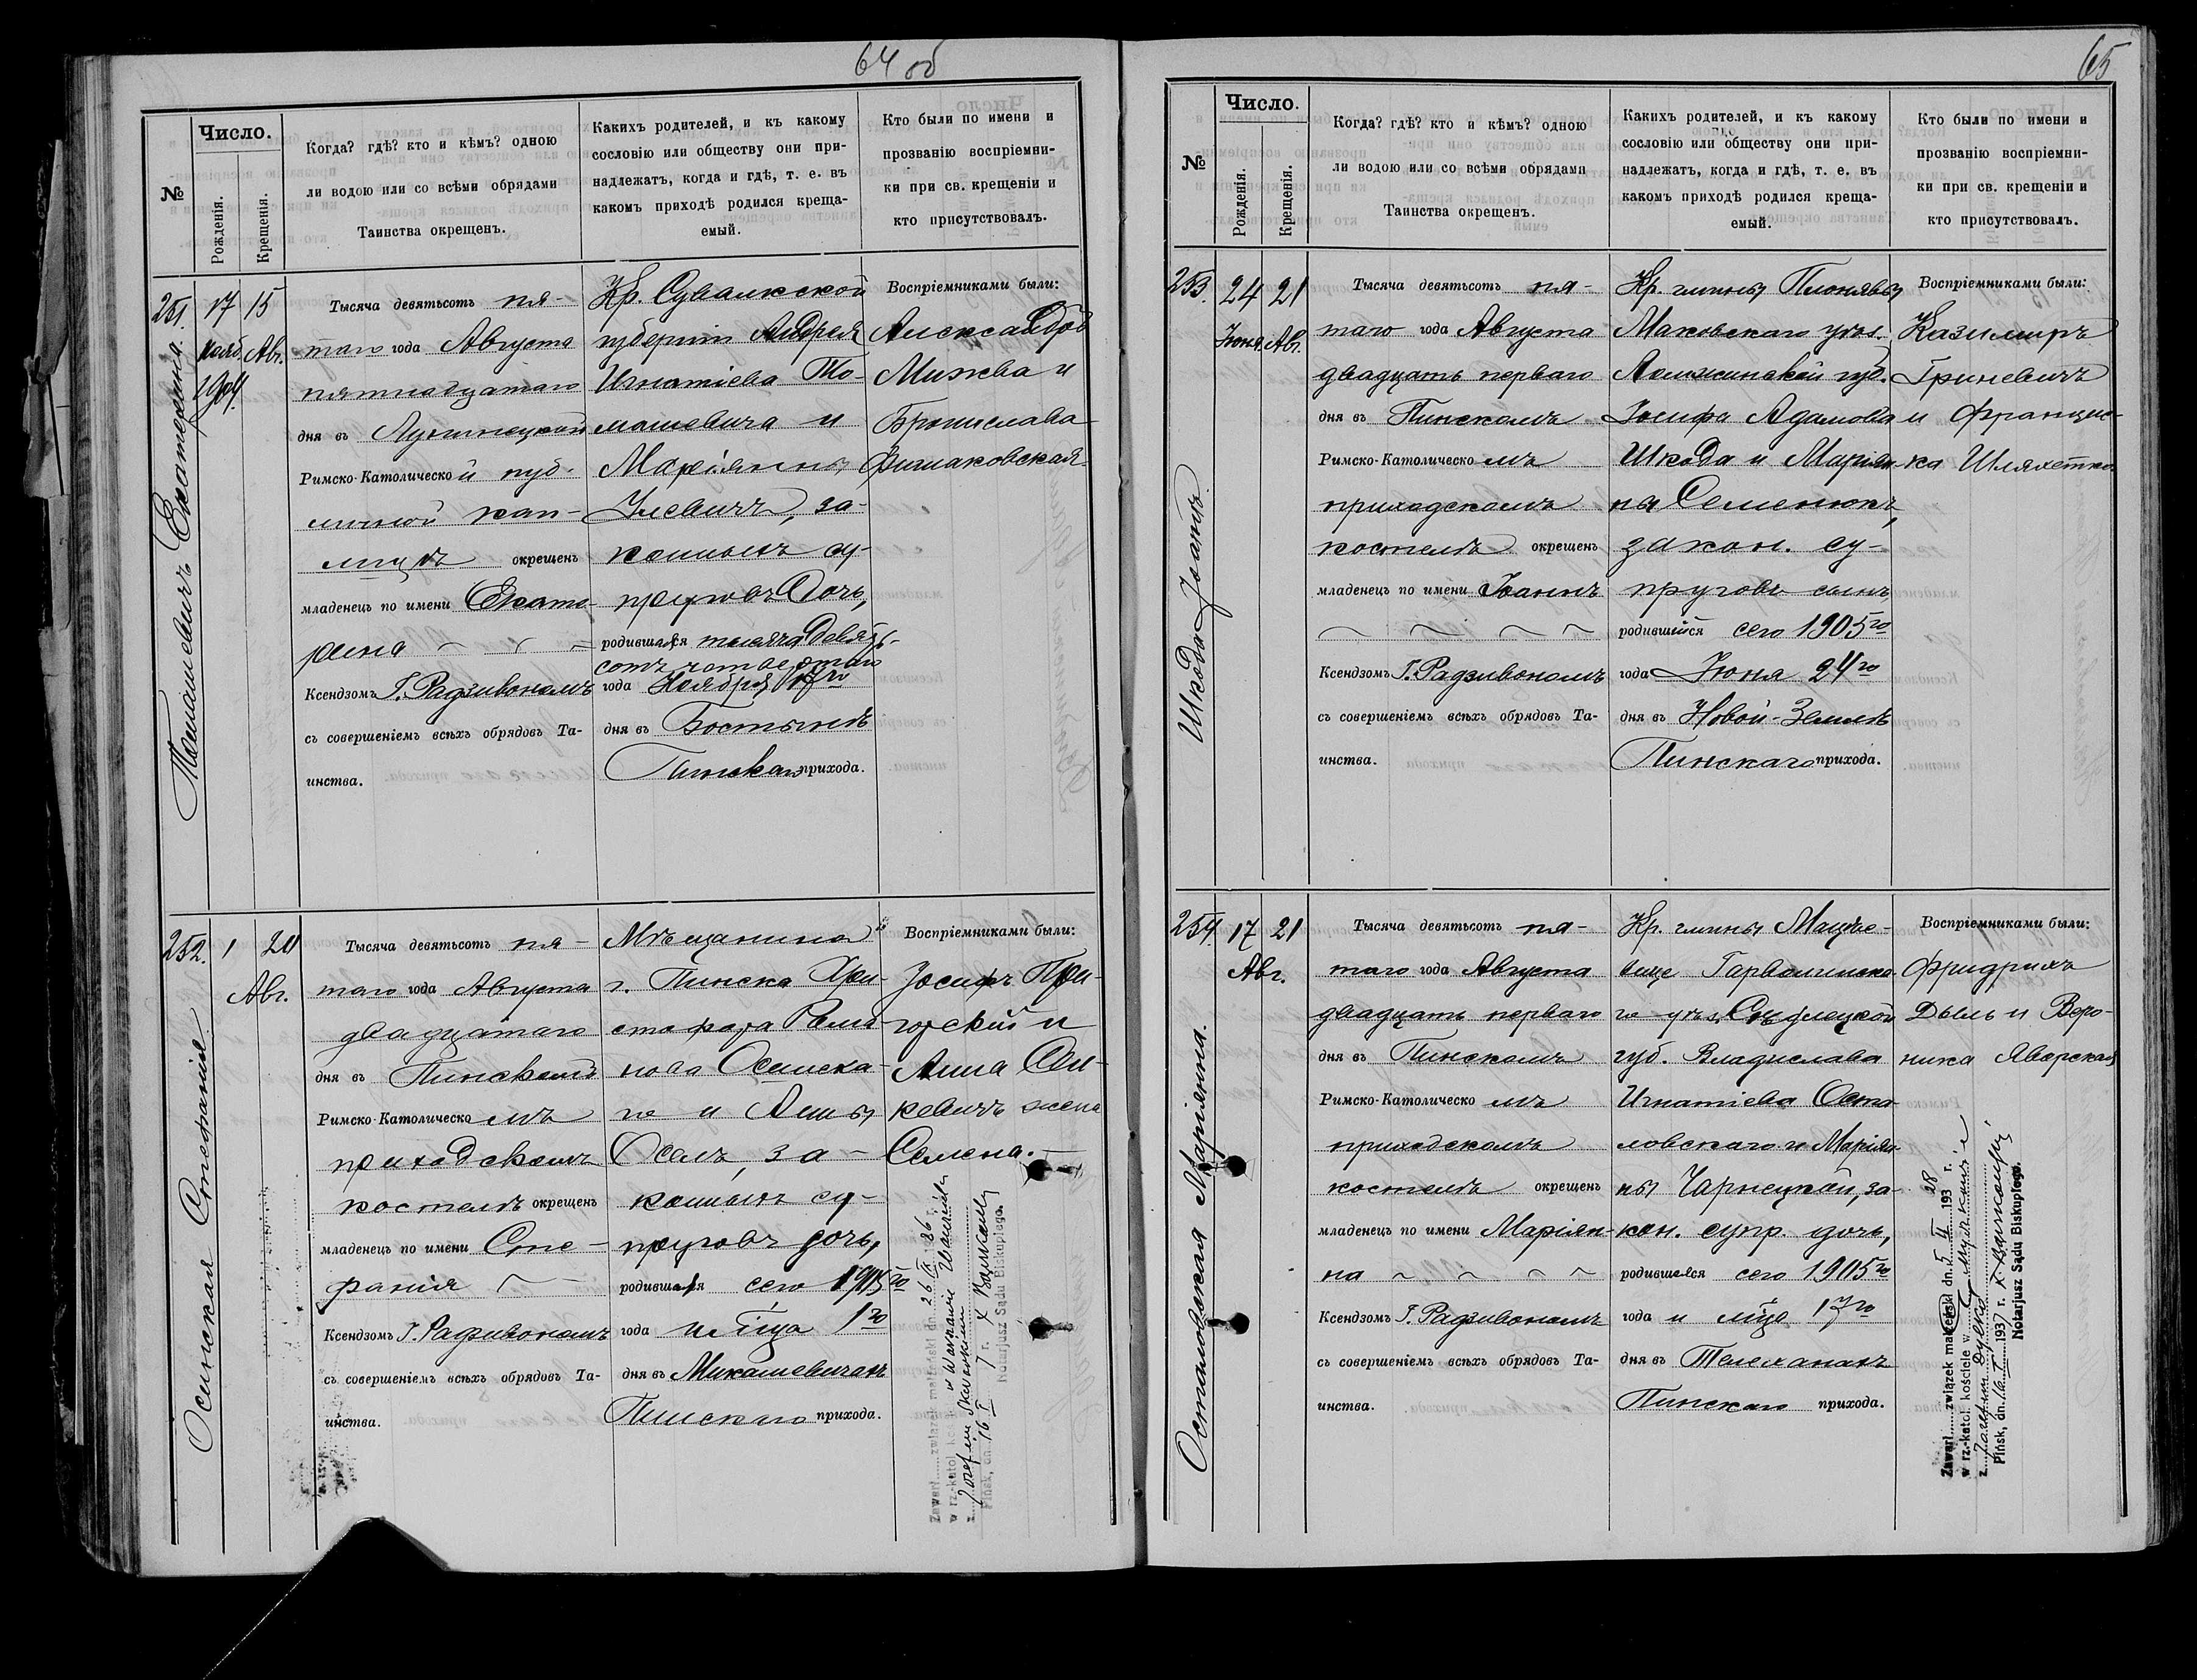 64 об
№
Число.
Рожденія.
Крещенія.
Когда? гдѣ? кто и кѣмъ? одною
ли водою или со всѣми обрядами
Таинства окрещенъ.
Какихъ родителей, и къ какому
сословію или обществу они при-
надлежатъ, когда и гдѣ, т. е. въ
какомъ приходѣ родился креща-
емый.
Кто были по имени и
прозванію воспріемни-
ки при св. крещеніи и
кто присутствовалъ.
251.
Томашевичъ Екатерина.
17
Нояб.
1904.
15
Авг.
Тысяча девятьсотъ пя-
таго года Августа
пятнадцатаго
дня въ Лунинецкой
Римско-Католической пуб-
личной кап-
лицѣ окрещенъ
младенецъ по имени Екате-
рина
Ксендзомъ Г. Радзивономъ
съ совершеніемъ всѣхъ обрядовъ Та-
инства.
Кр. Сувалкской
губерніи Андрея
Игнатіева То-
машевича и
Маріянны
Улевичъ, за-
конныхъ су-
пруговъ дочь,
родившаяся тысяча девять-
сотъ четвертаго
года Ноября 17го
дня въ Бостынѣ
Пинскаго прихода.
Воспріемниками были:
Мижва и
Бронислава
252.
Осинская Стефанія.
1
20
Авг.
Тысяча девятьсотъ пя-
таго года Августа
двадцатаго
дня въ Пинскомъ
Римско-Католическомъ
приходскомъ
костелѣ окрещенъ
младенецъ по имени Сте-
фанія
Ксендзомъ Г. Радзивономъ
съ совершеніемъ всѣхъ обрядовъ Та-
инства.
Мѣщанина
г. Пинска Хри-
стофора Рома-
нова Осинска-
го и Анны
Осель, за-
конныхъ су-
пруговъ дочь,
родившаяся сего 1905го
года и мѣсца 1го
дня въ Микашевичахъ
Пинскаго прихода.
Воспріемниками были:
Іосифъ При-
горскій и
Анна
кевичъ жена
Семена.
Zawarł związek małżeński dn. 26
w rz.-katol. kościele w Warszawie
z Józefem
Pińsk, dn. 16 I 7 r.
Notarjusz Sądu Biskupiego.
65
№
Число.
Рожденія.
Крещенія.
Когда? гдѣ? кто и кѣмъ? одною
ли водою или со всѣми обрядами
Таинства окрещенъ.
Какихъ родителей, и къ какому
сословію или обществу они при-
надлежатъ, когда и гдѣ, т. е. въ
какомъ приходѣ родился креща-
емый.
Кто были по имени и
прозванію воспріемни-
ки при св. крещеніи и
кто присутствовалъ.
253.
Шкода Іоаннъ.
24
Іюня
21
Авг.
Тысяча девятьсотъ пя-
таго года Августа
двадцать перваго
дня въ Пинскомъ
Римско-Католическомъ
приходскомъ
костелѣ окрещенъ
младенецъ по имени Іоаннъ
Ксендзомъ Г. Радзивономъ
съ совершеніемъ всѣхъ обрядовъ Та-
инства.
Кр. гмины Плонявы
Маковскаго уѣз.
Ломжинской губ.
Іосифа Адамова
Шкода и Маріян-
ны Семенюкъ,
закон. су-
пруговъ сынъ
родившійся сего 1905го
года Іюня 24го
дня въ Новой-Землѣ
Пинскаго прихода.
Воспріемниками были:
Казимиръ
Гриневичъ
и Францис-
ка Шляхетко
254.
Остаповская Маріянна.
17
Авг.
21
Тысяча девятьсотъ пя-
таго года Августа
двадцать перваго
дня въ Пинскомъ
Римско-Католическомъ
приходскомъ
костелѣ окрещенъ
младенецъ по имени Маріян-
на
Ксендзомъ Г. Радзивономъ
съ совершеніемъ всѣхъ обрядовъ Та-
инства.
Кр. гмины Мацѣе-
вице Гарволинска-
го уѣз. Сѣдлецкой
губ. Владислава
Игнатіева Оста-
ловскаго и Маріян-
ны Чарнецкой, за-
кон. супр. дочь,
родившаяся сего 1905го
года и мѣсца 17го
дня въ Телеханахъ
Пинскаго прихода.
Воспріемниками были:
Фридрихъ
Дыль и Веро-
ника Яворская
Zawarł związek małżeński dn. 5 II 1938 r.
w rz.-katol. kościele w
z
Pińsk, dn. 16 I 1937 r.
Notarjusz Sądu Biskupiego.